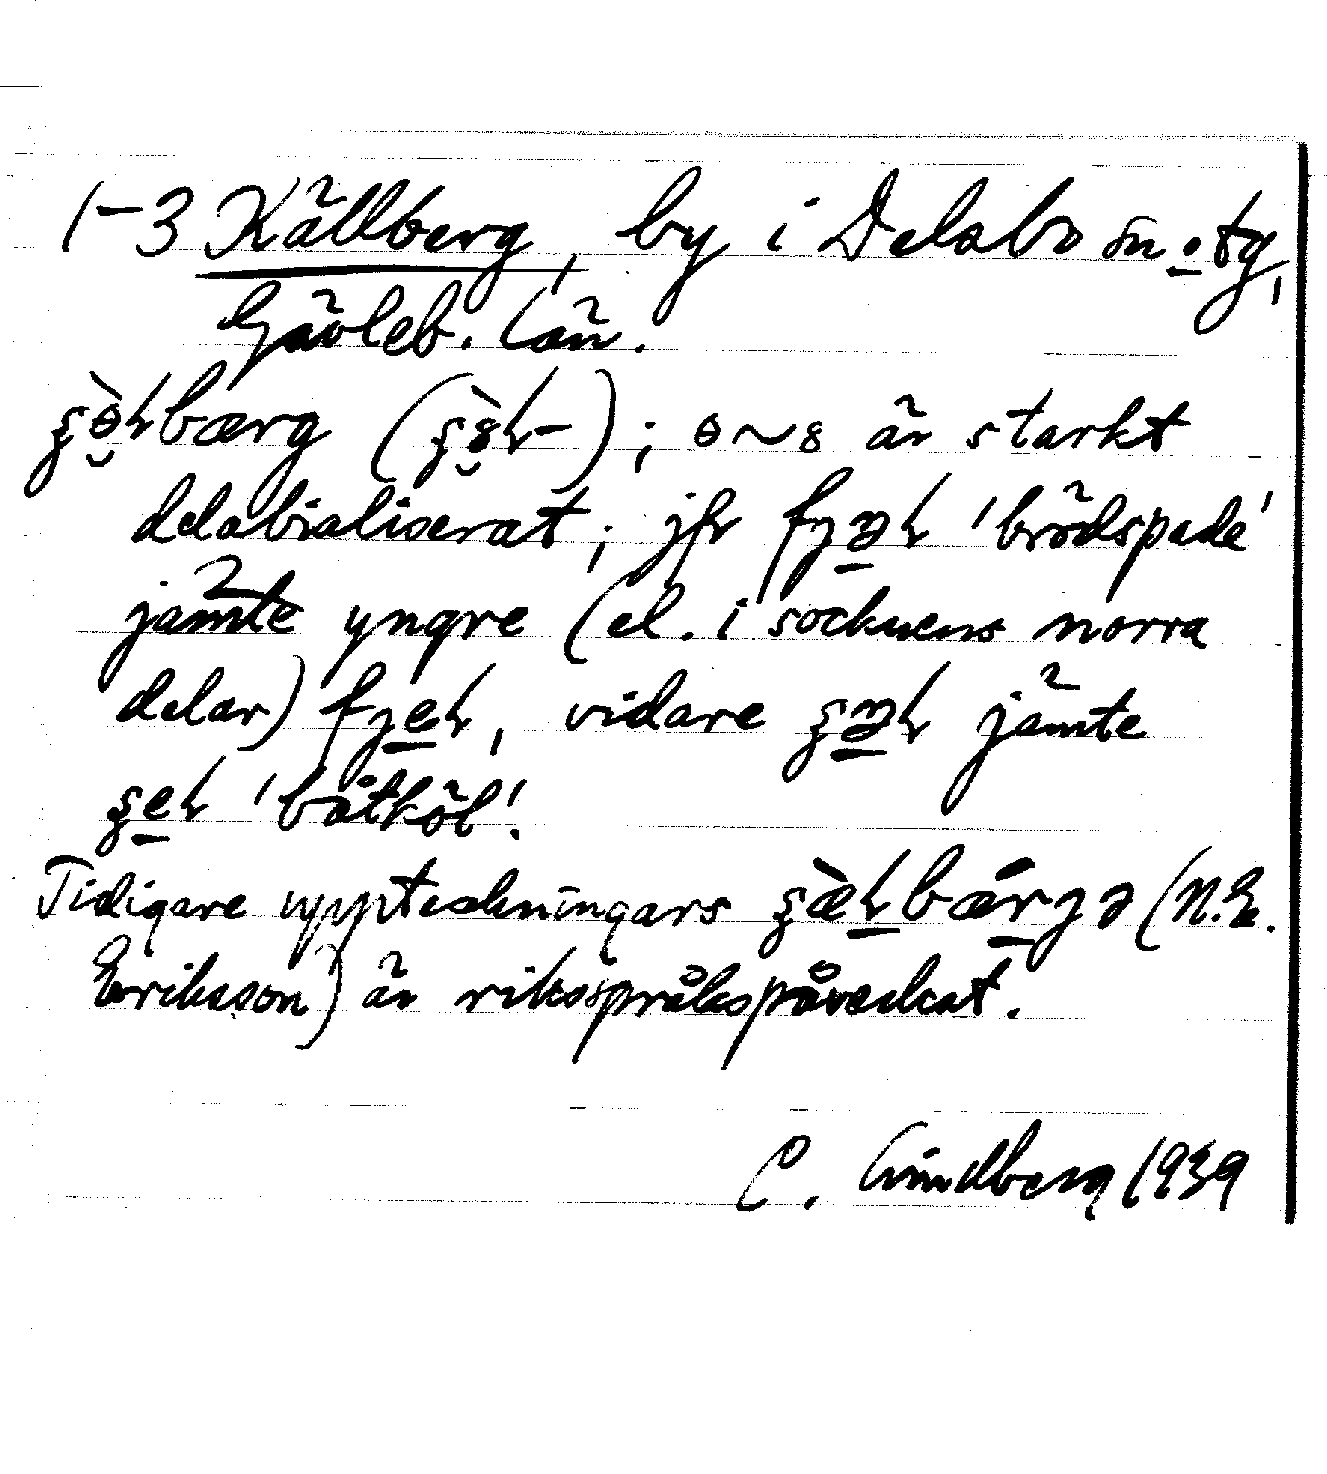 1–3 Källberg, by i Delsbo sn o. tg,
Gävleb. län.
bærg ( ); ɵ~8 är starkt
delabialiserat; jfr 'brödspade'
jämte yngre (el. i socknens norra
delar) , vidare jämte
'båtköl'.
Tidigare uppteckningars (N.E.
Eriksson) är riksspråkspåverkat.
C. Lindberg 1939